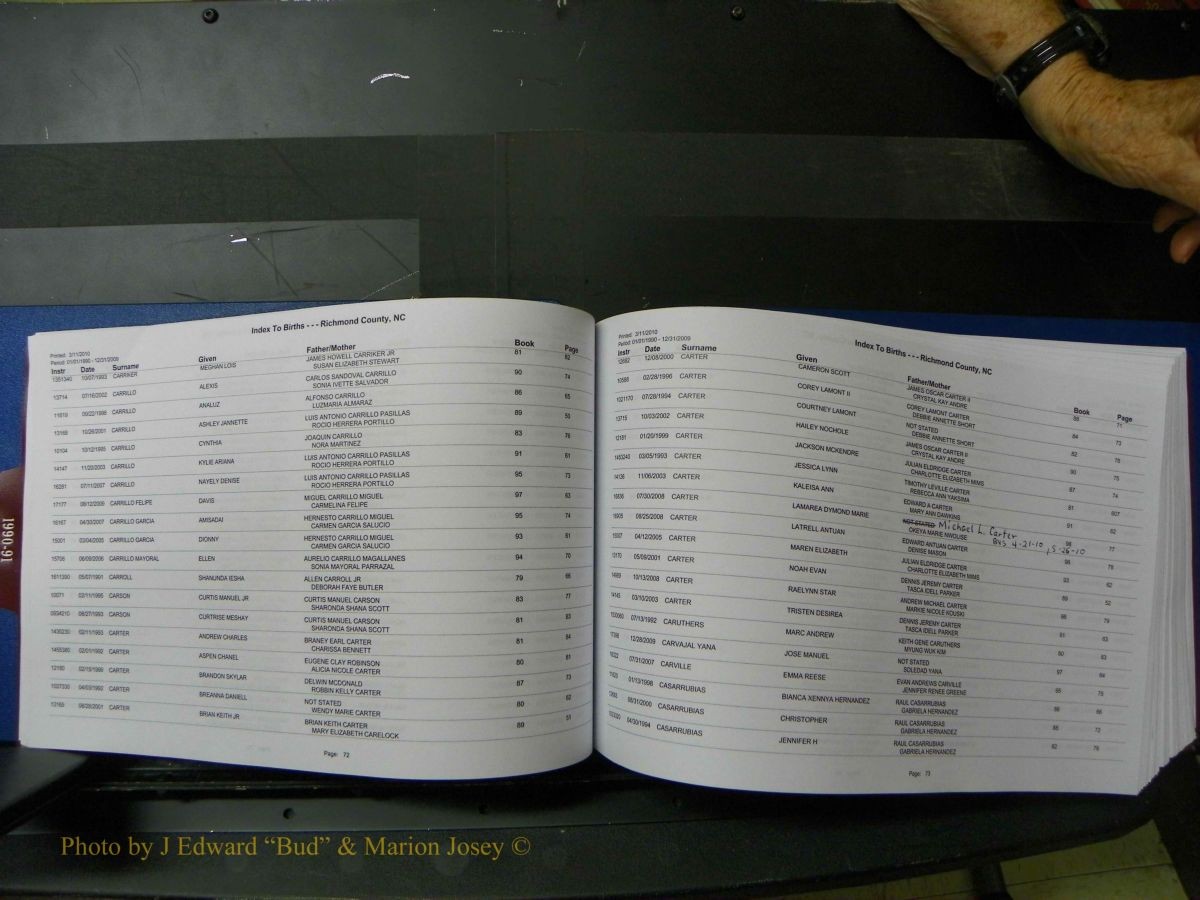 Index To Births - - - Richmond County, NC
Printed: 3/11/2010
Period: 01/01/1990 - 12/31/2009
Instr Date Surname Given Father/Mother Book Page
1351340 10/07/1993 CARRIKER MEGHAN LOIS JAMES HOWELL CARRIKER JR 81 82
SUSAN ELIZABETH STEWART
13714 07/16/2002 CARRILLO ALEXIS CARLOS SANDOVAL CARRILLO 90 74
SONIA IVETTE SALVADOR
09/22/1998 CARRILLO ANALUZ ALFONSO CARRILLO 86 65
LUZMARIA ALMARAZ
13168 10/26/2001 CARRILLO ASHLEY JANNETTE LUIS ANTONIO CARRILLO PASILLAS 89 50
ROCIO HERRERA PORTILLO
10104 10/12/1995 CARRILLO CYNTHIA JOAQUIN CARRILLO 83 76
NORA MARTINEZ
14147 11/20/2003 CARRILLO KYLIE ARIANA LUIS ANTONIO CARRILLO PASILLAS 91 61
ROCIO HERRERA PORTILLO
16281 07/11/2007 CARRILLO NAYELY DENISE LUIS ANTONIO CARRILLO PASILLAS 95 73
ROCIO HERRERA PORTILLO
17177 CARRILLO FELIPE DAVIS MIGUEL CARRILLO MIGUEL 97 63
CARMELINA FELIPE
16167 04/30/2007 CARRILLO GARCIA AMISADAI HERNESTO CARRILLO MIGUEL 95 74
CARMEN GARCIA SALUCIO
15001 03/04/2005 CARRILLO GARCIA DIONNY HERNESTO CARRILLO MIGUEL 93 51
CARMEN GARCIA SALUCIO
15706 06/09/2006 CARRILLO MAYORAL ELLEN AURELIO CARRILLO MAGALLANES 94 70
SONIA MAYORAL PARRAZAL
05/07/1991 CARROLL SHANUNDA IESHA ALLEN CARROLL JR 79 66
DEBORAH FAYE BUTLER
CARSON CURTIS MANUEL JR CURTIS MANUEL CARSON 83 77
SHARONDA SHANA SCOTT
CARSON CURTRISE MESHAY CURTIS MANUEL CARSON 81 83
SHARONDA SHANA SCOTT
CARTER ANDREW CHARLES BRANEY EARL CARTER 81 84
CHARISSA BENNETT
CARTER ASPEN CHANEL EUGENE CLAY ROBINSON 80 81
ALICIA NICOLE CARTER
CARTER BRANDON SKYLAR DELWIN MCDONALD 87 73
ROBBIN KELLY CARTER
CARTER BREANNA DANIELL NOT STATED 80 82
WENDY MARIE CARTER
13165 CARTER BRIAN KEITH JR BRIAN KEITH CARTER 89 51
MARY ELIZABETH CARELOCK
Page: 72
Index To Births - - - Richmond County, NC
Printed: 3/11/2010
Period: 01/01/1990 - 12/31/2009
Instr Date Surname Given Father/Mother Book Page
12682 12/08/2000 CARTER CAMERON SCOTT JAMES OSCAR CARTER II 88 71
CRYSTAL KAY ANDRE
10586 02/28/1996 CARTER COREY LAMONT II COREY LAMONT CARTER 84 73
DEBBIE ANNETTE SHORT
1021170 07/28/1994 CARTER COURTNEY LAMONT NOT STATED 82 78
DEBBIE ANNETTE SHORT
13715 10/03/2002 CARTER HAILEY NOCHOLE JAMES OSCAR CARTER II 90 75
CRYSTAL KAY ANDRE
12181 01/20/1999 CARTER JACKSON MCKENDRE JULIAN ELDRIDGE CARTER 87 74
CHARLOTTE ELIZABETH MIMS
1453240 03/05/1993 CARTER JESSICA LYNN TIMOTHY LEVILLE CARTER 81 607
REBECCA ANN YAKSIMA
14126 11/06/2003 CARTER KALEISA ANN EDWARD A CARTER 91 62
MARY ANN DAWKINS
16936 07/30/2008 CARTER LAMAREA DYMOND MARIE NOT STATED Michael L. Carter 96 77
OKEYA MARIE NWOUSE BWS 4-21-10, 5-26-10
16905 08/25/2008 CARTER LATRELL ANTUAN EDWARD ANTUAN CARTER 96 78
DENISE MASON
04/12/2005 CARTER MAREN ELIZABETH JULIAN ELDRIDGE CARTER 93 62
CHARLOTTE ELIZABETH MIMS
13170 05/09/2001 CARTER NOAH EVAN DENNIS JEREMY CARTER 89 52
TASCA IDELL PARKER
10/13/2008 CARTER RAELYNN STAR ANDREW MICHAEL CARTER 96 79
MARKIE NICOLE KOUSKI
14145 03/10/2003 CARTER TRISTEN DESIREA DENNIS JEREMY CARTER 91 63
TASCA IDELL PARKER
07/13/1992 CARUTHERS MARC ANDREW KEITH GENE CARUTHERS 80 83
MYUNG WUK KIM
12/28/2009 CARVAJAL YANA JOSE MANUEL NOT STATED 97 64
SOLEDAD YANA
07/31/2007 CARVILLE EMMA REESE EVAN ANDREWS CARVILLE 95 75
JENNIFER RENEE GREENE
01/13/1998 CASARRUBIAS BIANCA XENNYA HERNANDEZ RAUL CASARRUBIAS 86 66
GABRIELA HERNANDEZ
08/31/2000 CASARRUBIAS CHRISTOPHER RAUL CASARRUBIAS 88 72
GABRIELA HERNANDEZ
04/30/1994 CASARRUBIAS JENNIFER H RAUL CASARRUBIAS 82 79
GABRIELA HERNANDEZ
Page: 73
1990-91
Photo by J Edward “Bud” & Marion Josey ©